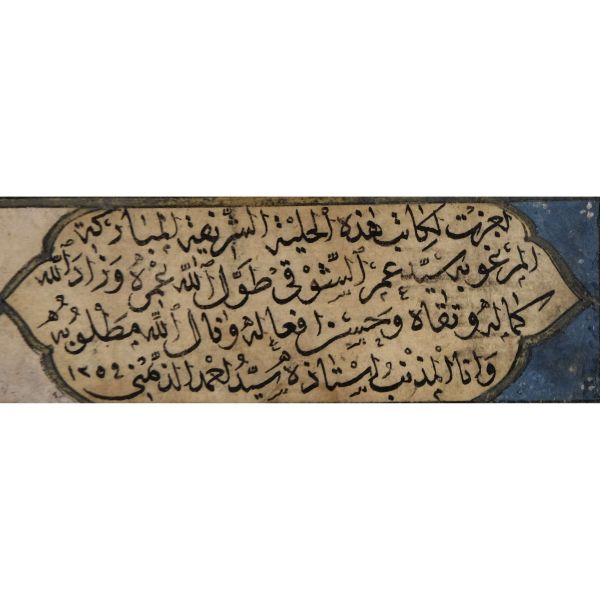 اجزت لكاتب هذه الحلية الشريفة المباركة
المرغوبه سيد عمر الشوقى طول الله عمره وزاد الله
كماله وتقاه وحسن افعاله وانال الله مطلوبه
وانا المذنب استاذه سيد احمد الذهنى ١٢٥٤